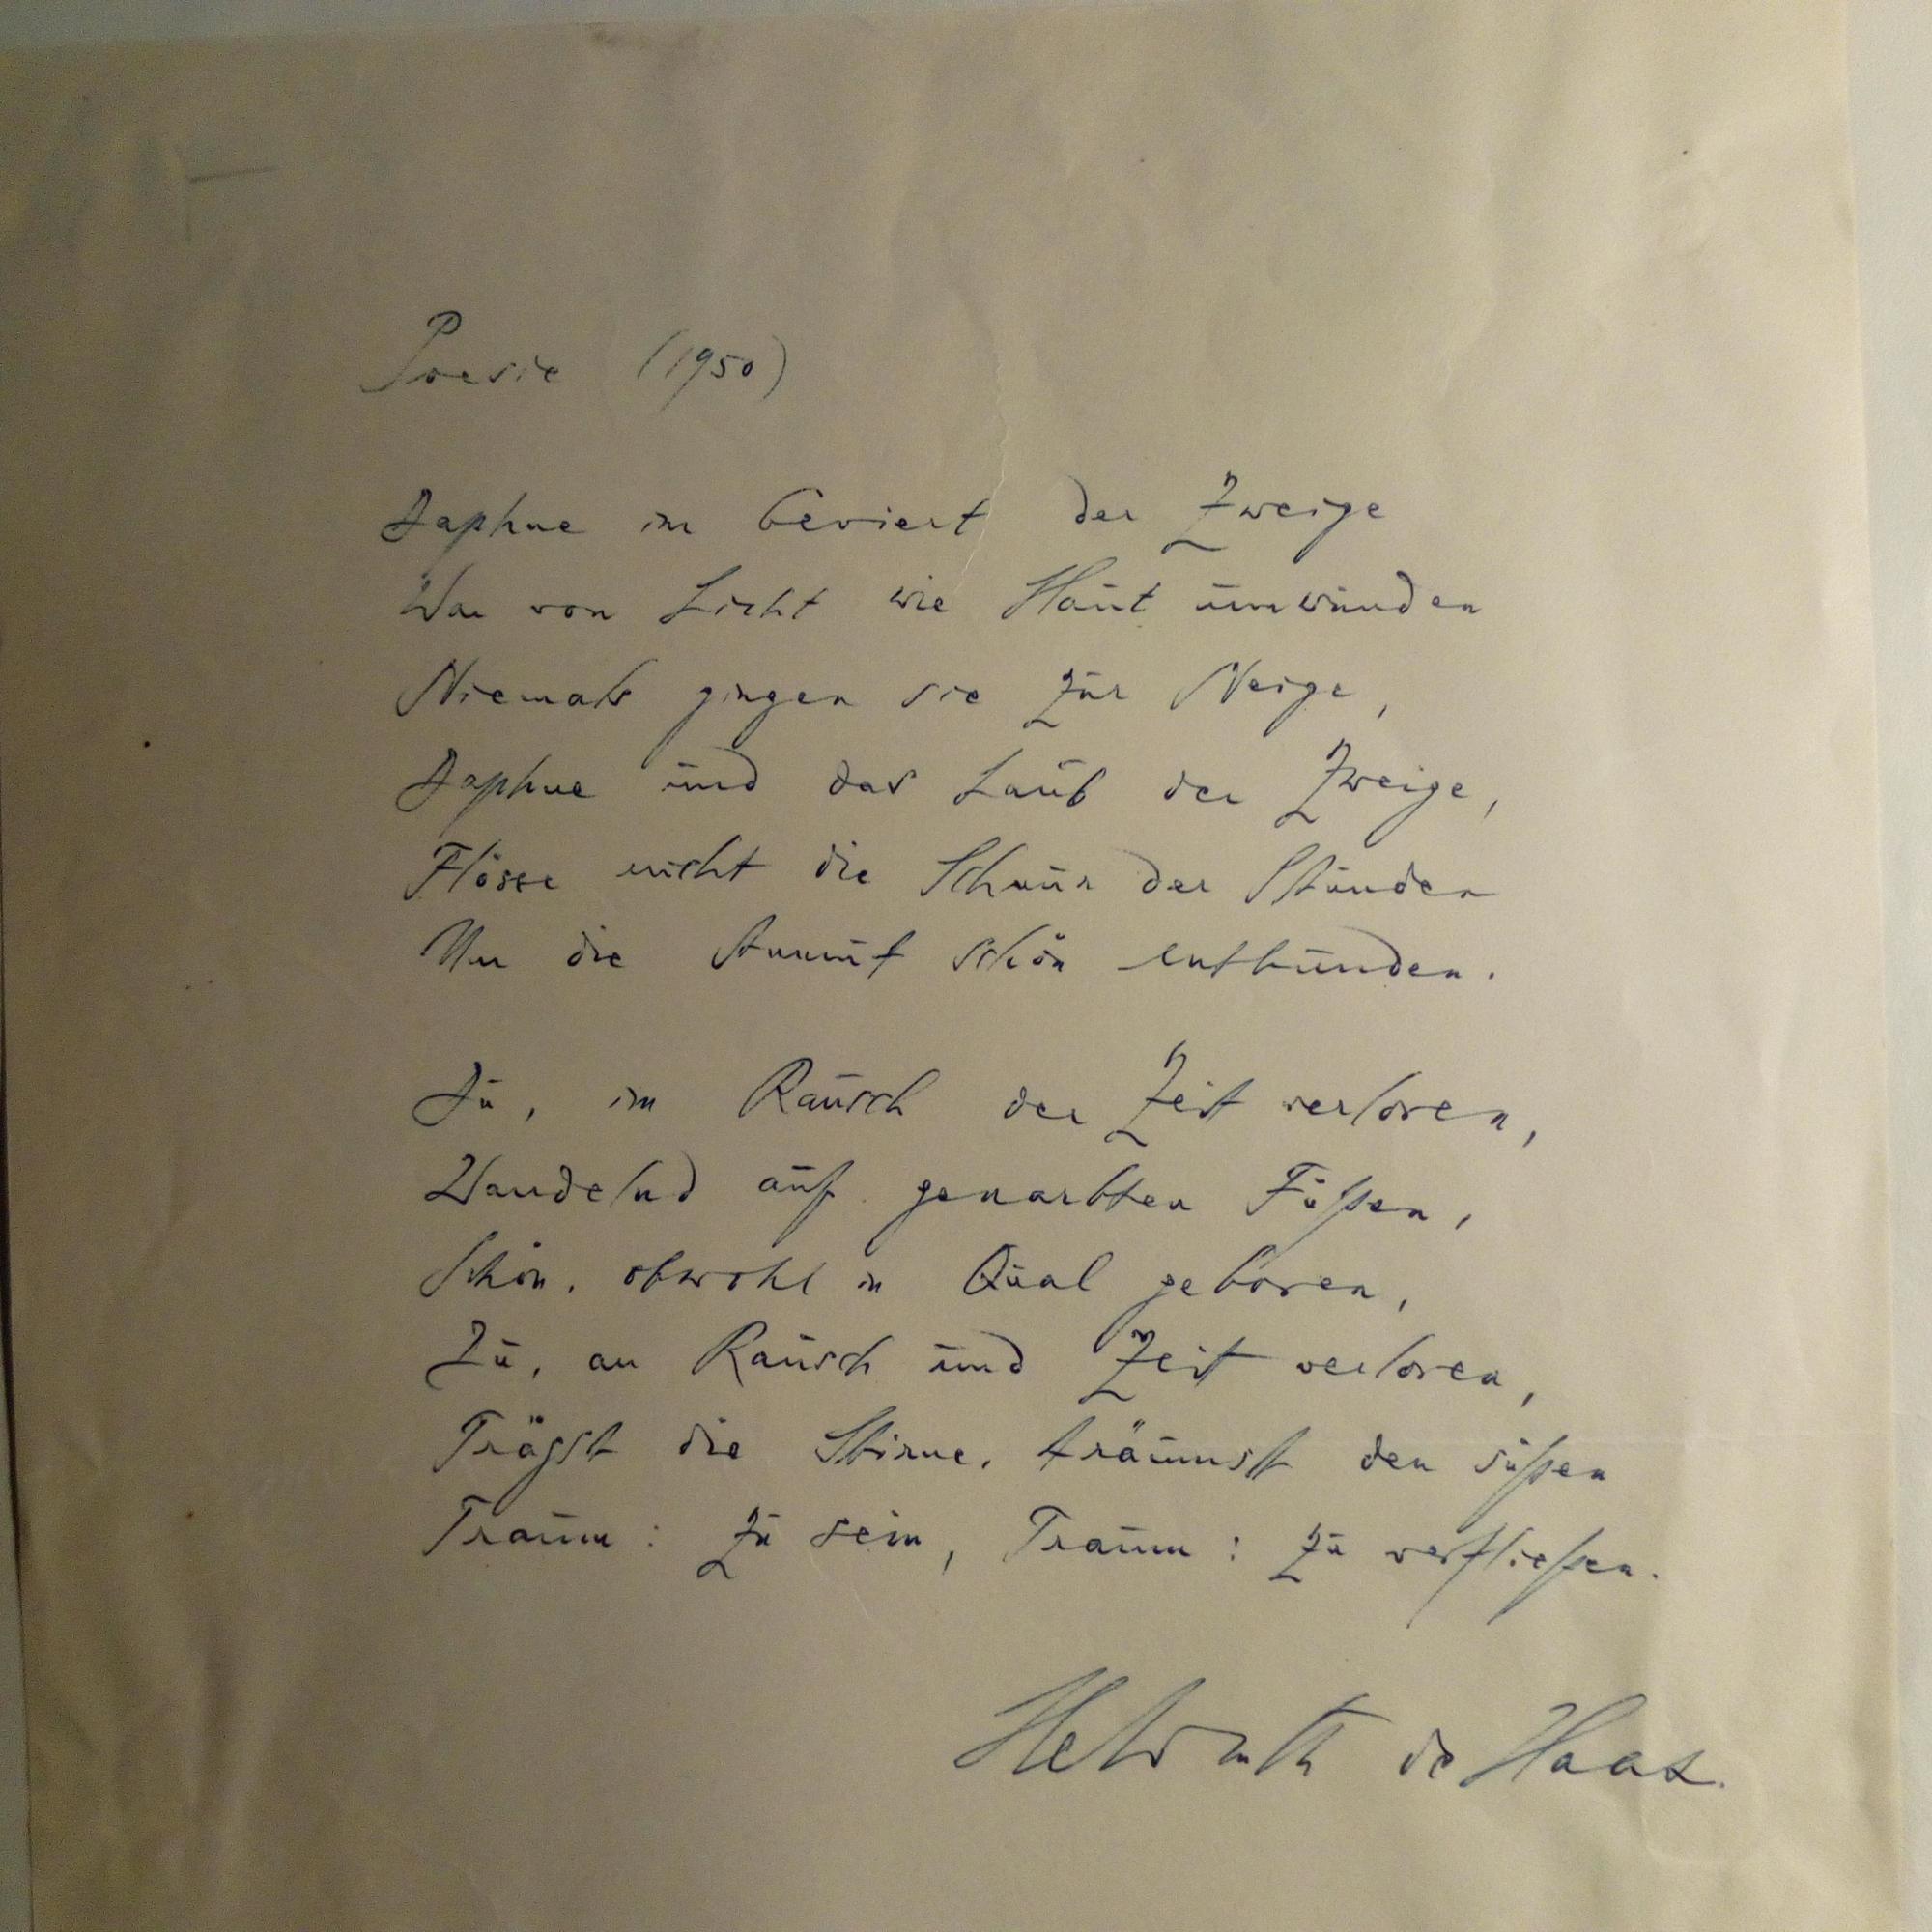 Poesie (1950)
Daphne im Geviert der Zweige
War von Licht wie Haut umwunden
Niemals gingen sie zur Neige,
Daphne und das Laub der Zweige,
Flösse nicht die Schnur der Stunden
Um die Anmut schön entbunden.
Du, im Rausch der Zeit verloren,
Wandelnd auf genarbten Füßen,
Schön, obwohl in Qual geboren,
Du, an Rausch und Zeit verloren,
Trägst die Stirne, träumst den süßen
Traum: zu sein, Traum: zu verfließen.
Helmuth de Haas.